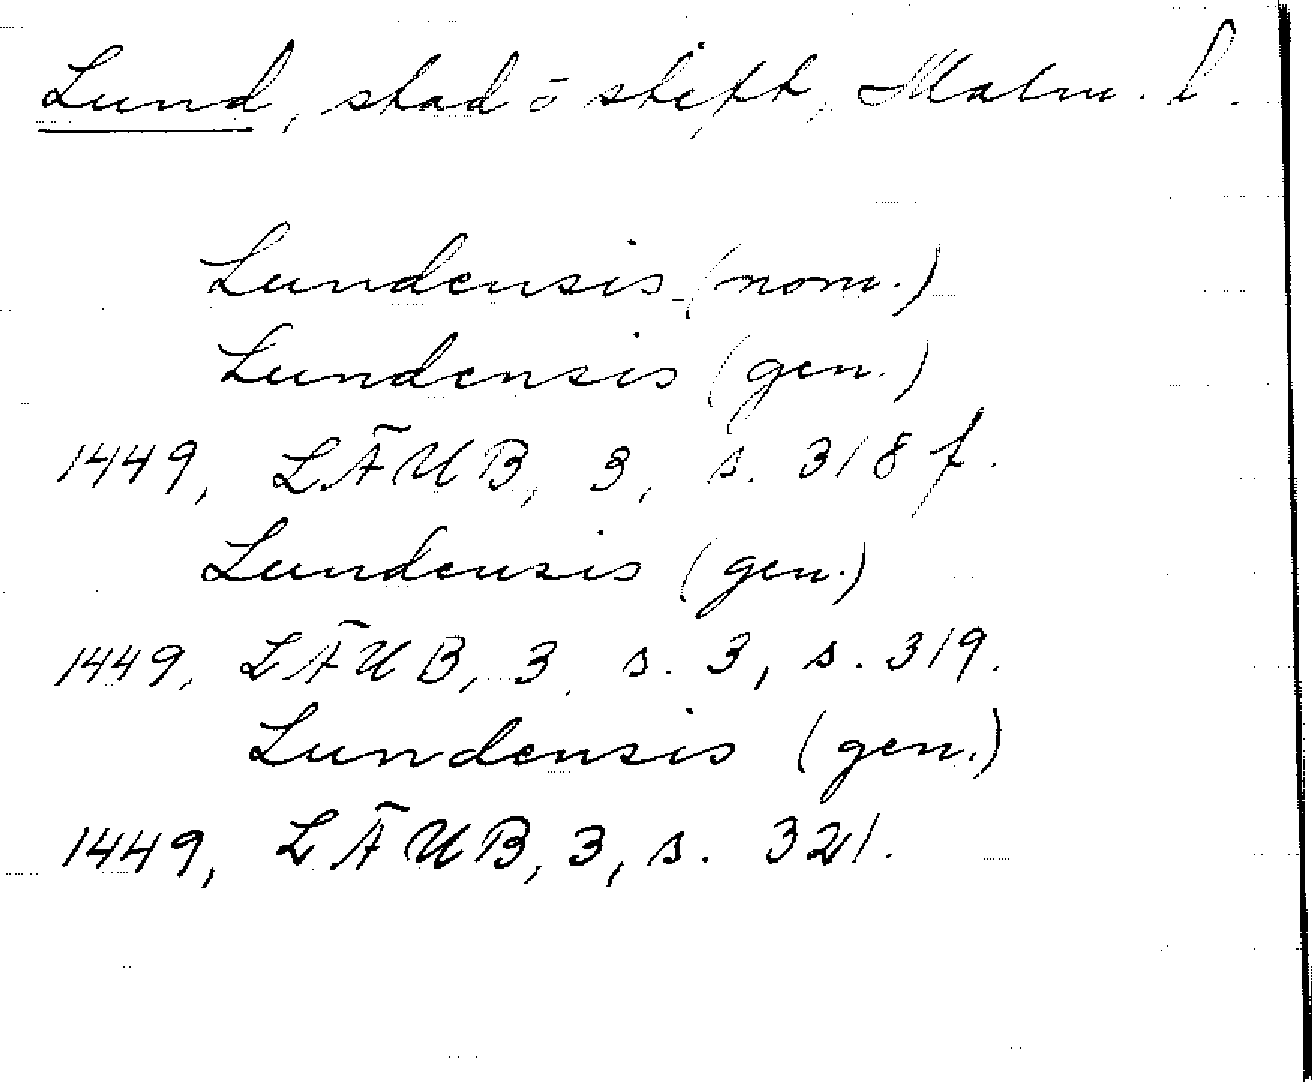 Lund, stad o stift, Malm. l.
Lundensis (nom.)
Lundensis (gen.)
1449, LÄUB, 3, s. 318 f.
Lundensis (gen.)
1449, LÄUB, 3, s. 3, s. 319.
Lundensis (gen.)
1449, LÄUB, 3, s. 321.